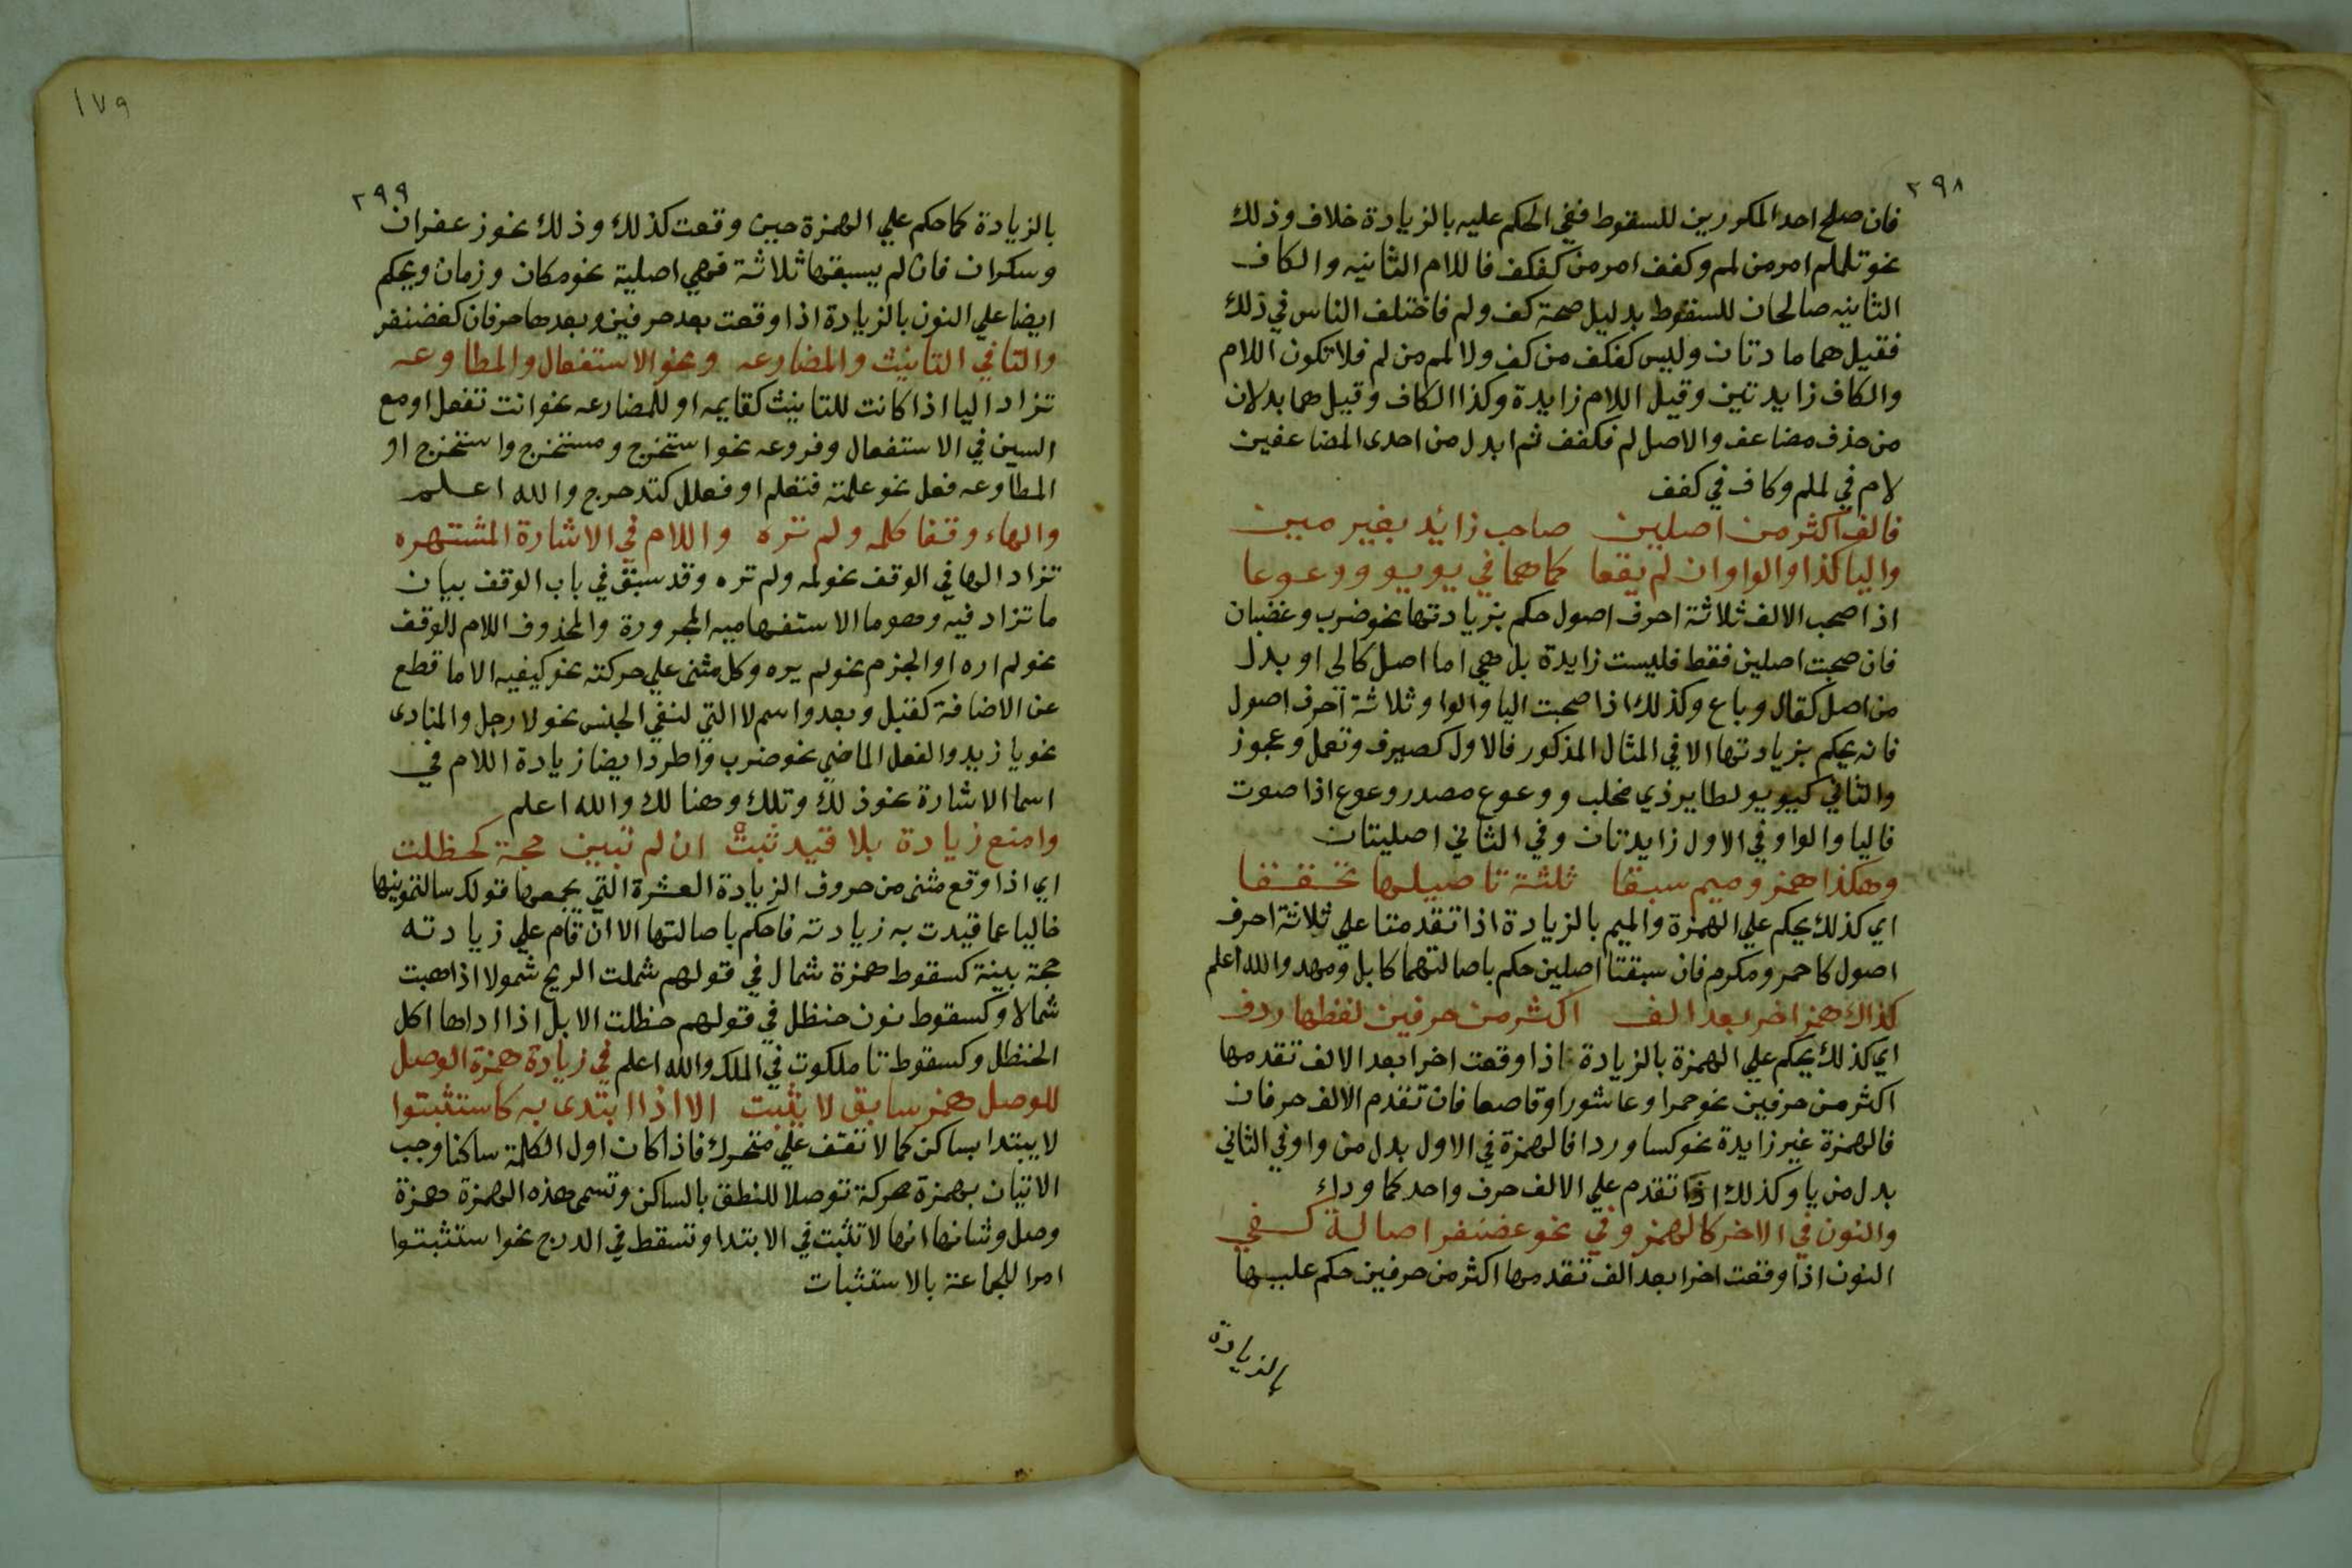 ٢٩٨
فان صلح احد المكورين للسقوط ففي الحكم عليه بالزيادة خلاف وذلك
نحو تلملم امر من لملم وكفف امر من كفكف فاللام الثانيه والكاف
الثانيه صالحان للسقوط بدليل صحة كف ولم فاختلف الناس في ذلك
فقيل هما مادتان وليس كفكف من كف ولا لملم من لم فلا تكون اللام
والكاف زايدتين وقيل اللام زايدة وكذا الكاف وقيل هما بدلان
من حذف مضاعف والاصل لم فكفف ثم ابدل من احدى المضاعفين
لام في لملم وكاف في كفف
فالف اكثر من اصلين صاحب زائد بغير مين
واليا كذا والواو ان لم يقعا كما هما في يويو ووعوعا
اذا صحب الالف ثلاثة احرف اصول حكم بزيادتها نحو ضرب وغضبان
فان صحبت اصلين فقط فليست زايدة بل هي اما اصل كالى او بدل
من اصل كقال وباع وكذلك اذا صحبت اليا والواو ثلاثة احرف اصول
فانه يحكم بزيادتها الا في المثال المذكور فالاول كصيرف وتعمل وعجوز
والثاني كيويو لطاير ذي مخلب ووعوع مصدر وعوع اذا صوت
فاليا والواو في الاول زايدتان وفي الثاني اصليتان
وهكذا همز وميم سبقا ثلثة تاصيلها تحققا
اي كذلك يحكم علي الهمزة والميم بالزيادة اذا تقدمتا علي ثلاثة احرف
اصول كاحمر ومكرم فان سبقتا اصلين حكم باصالتهما كابل ومهد والله اعلم
كذاك همز اخر بعد الف اكثر من حرفين لفظها ردف
اي كذلك يحكم علي الهمزة بالزيادة اذا وقعت اخرا بعد الالف تقدمها
اكثر من حرفين نحو حمرا وعاشورا وقاصعا فان تقدم الالف حرفان
فالهمزة غير زايدة نحو كسا وردا فالهمزة في الاول بدل من واو وفي الثاني
بدل من يا وكذلك اذا تقدم علي الالف حرف واحد كما وداء
والنون في الاخر كالهمز وفي نحو غضنفر اصالة كفي
النون اذا وقعت اخرا بعد الف تقدمها اكثر من حرفين حكم عليها
بالزيادة
١٧٩
٢٩٩
بالزيادة كما حكم علي الهمزة حين وقعت كذلك وذلك نحو زعفران
وسكران فان لم يسبقها ثلاثة فهي اصلية نحو مكان وزمان ويحكم
ايضا علي النون بالزيادة اذا وقعت بعد حرفين وبعدها حرفان كغضنفر
والتا في التانيث والمضارعه ونحو الاستفعال والمطاوعه
تزاد اليا اذا كانت للتانيث كقايمه او للمضارعه نحو انت تفعل او مع
السين في الاستفعال وفروعه نحو استخرج ومستخرج واستخرج او
المطاوعه فعل نحو علمته فتعلم او فعلل كتدحرج والله اعلم
والهاء وقفا كلمه ولم تره واللام في الاشارة المشتهره
تزاد الها في الوقف نحو لمه ولم تره وقد سبق في باب الوقف بيان
ما تزاد فيه وهو ما الاستفهاميه المجرورة والمحذوف اللام للوقف
نحو لم اره او الجزم نحو لم يره وكل مثنى علي حركته نحو كيفيه الا ما قطع
عن الاضافة كقبل وبعد واسم لا التي لنفي الجنس نحو لا رجل والمنادى
نحو يا زيد والفعل الماضي نحو ضرب واطرد ايضا زيادة اللام في
اسما الاشارة نحو ذلك وتلك وهنالك والله اعلم
وامنع زيادة بلا قيد ثبت ان لم تبين حجة كحظلت
اي اذا وقع شئ من حروف الزيادة العشرة التي يجمعها قولك سالتمونيها
خاليا عما قيدت به زيادته فاحكم باصالتها الا ان قام علي زيادته
حجة بينة كسقوط همزة شمال في قولهم شملت الريح شمولا اذا هبت
شمالا وكسقوط نون حنظل في قولهم حنظلت الابل اذا اداها اكل
الحنظل وكسقوط تا ملكوت في الملك والله اعلم في زيادة همزة الوصل
للوصل همز سابق لا يثبت الا اذا ابتدى به كاستثبتوا
لا يبتدا بساكن كما لا تقف علي متحرك فاذا كان اول الكلمة ساكنا وجب
الاتيان بهمزة محركة توصلا للنطق بالساكن وتسمى هذه الهمزة همزة
وصل وشانها انها لا تثبت في الابتدا وتسقط في الدرج نحو استثبتوا
امرا للجماعة بالاستثبات